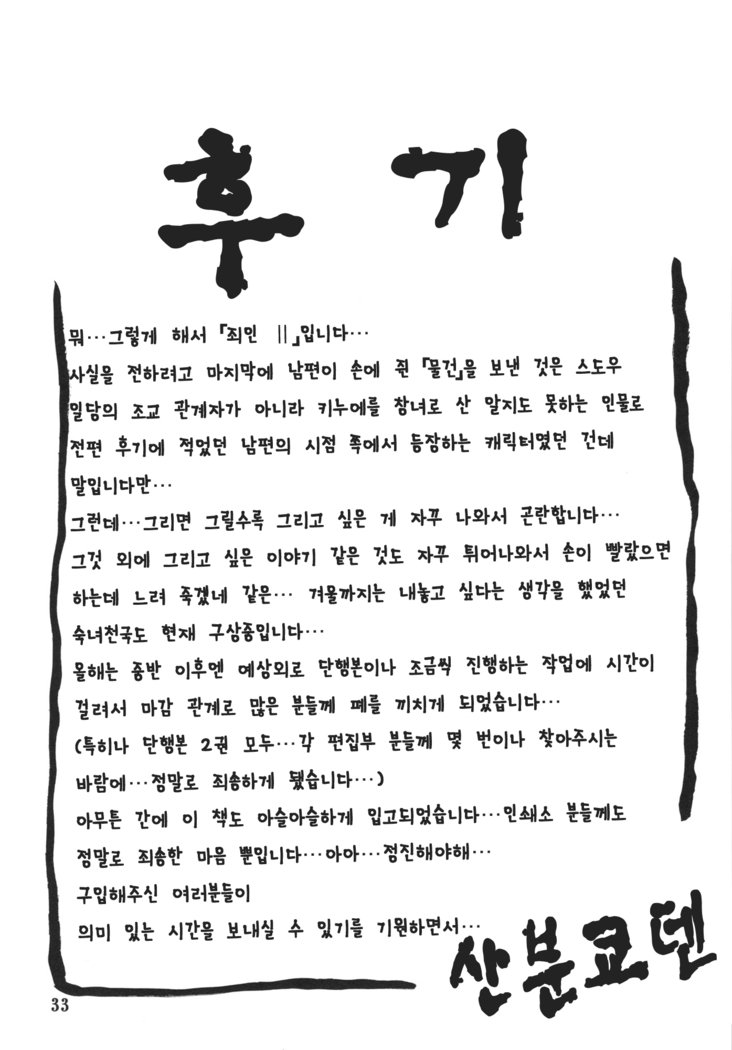 후 기
뭐…그렇게 해서 『죄인 Ⅱ』입니다…
사실을 전하려고 마지막에 남편이 손에 쥔 『물건』을 보낸 것은 스도우
일담의 조교 관계자가 아니라 키누에를 창녀로 산 알지도 못하는 인물로
전편 후기에 적었던 남편의 시점 쪽에서 등장하는 캐릭터였던 건데
말입니다만…
그런데…그리면 그릴수록 그리고 싶은 게 자꾸 나와서 곤란합니다…
그것 외에 그리고 싶은 이야기 같은 것도 자꾸 튀어나와서 손이 빨랐으면
하는데 느려 죽겠네 같은… 겨울까지는 내놓고 싶다는 생각을 했었던
숙녀천국도 현재 구상중입니다…
올해는 중반 이후엔 예상외로 단행본이나 조금씩 진행하는 작업에 시간이
걸려서 마감 관계로 많은 분들께 폐를 끼치게 되었습니다…
(특히나 단행본 2권 모두…각 편집부 분들께 몇 번이나 찾아주시는
바람에…정말로 죄송하게 됐습니다…)
아무튼 간에 이 책도 아슬아슬하게 입고되었습니다…인쇄소 분들께도
정말로 죄송한 마음 뿐입니다…아아…정진해야해…
구입해주신 여러분들이
의미 있는 시간을 보내실 수 있기를 기원하면서…
산분쿄덴
33